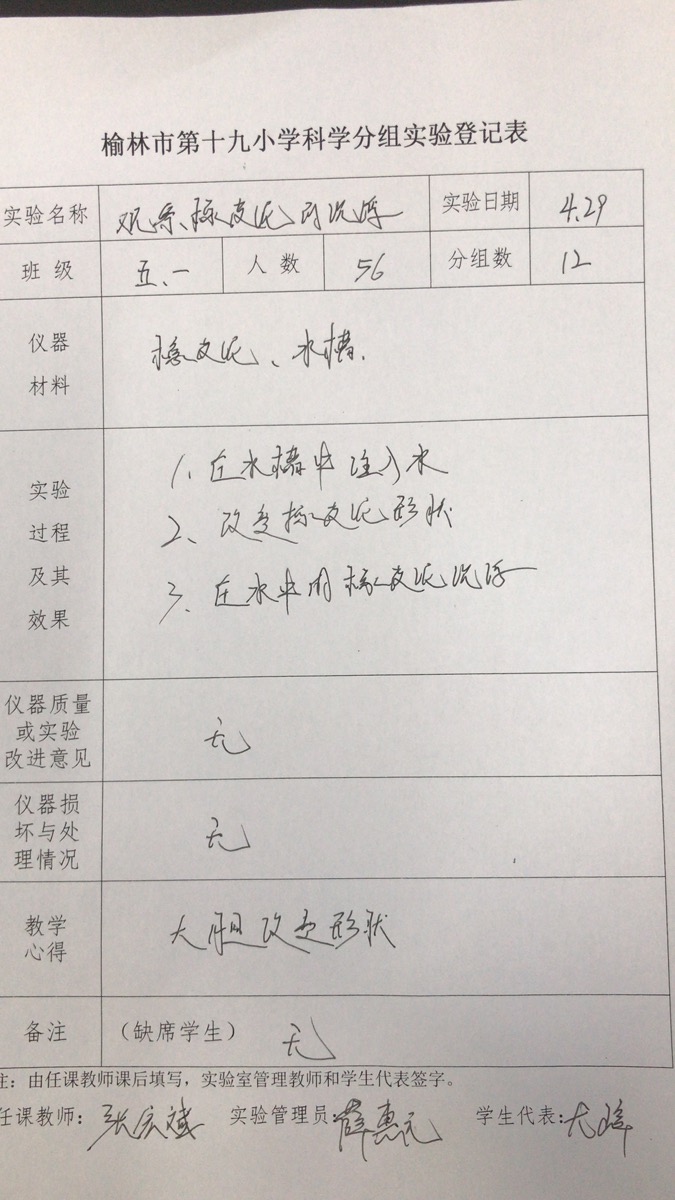 榆林市第十九小学科学分组实验登记表
实验名称 观察橡皮泥的沉浮 实验日期 4.29
班 级 五.一 人 数 56 分组数 12
仪器
材料
橡皮泥、水槽.
实验
过程
及其
效果
1、在水槽中注入水
2、改变橡皮泥形状
3、在水中用橡皮泥沉浮
仪器质量
或实验
改进意见
无
仪器损
坏与处
理情况
无
教学
心得
大胆改变形状
备注 (缺席学生) 无
注: 由任课教师课后填写, 实验室管理教师和学生代表签字。
任课教师: 张宏斌 实验管理员: 薛惠元 学生代表: